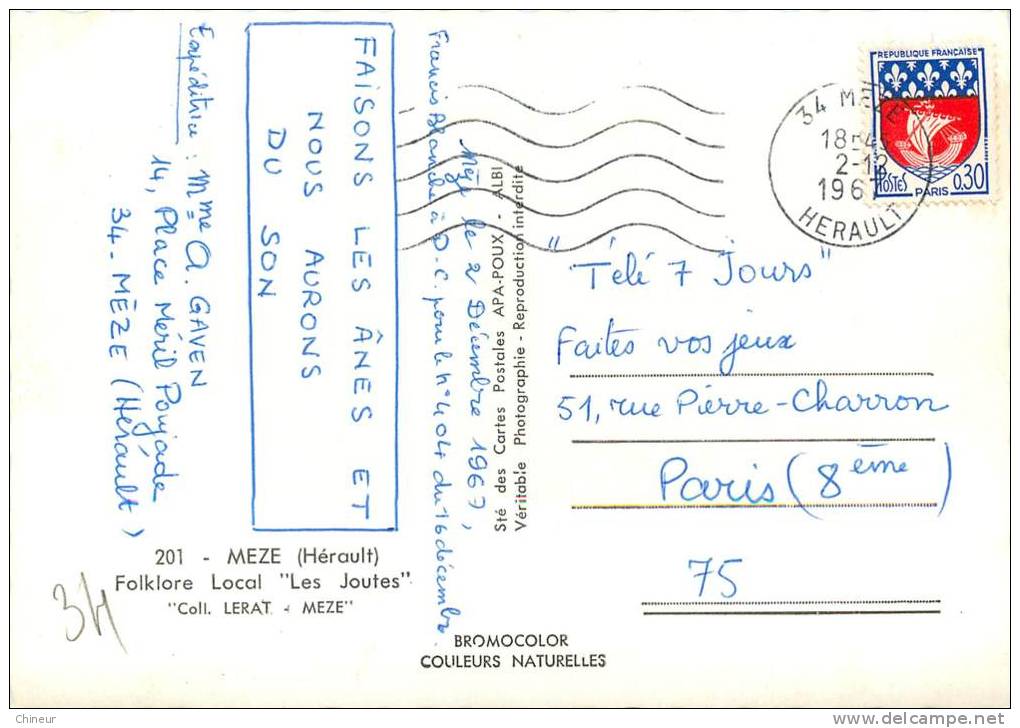 Mèze le 2 Décembre 1967,
Francis Blanche à D-C. pour le n° 404 du 16 décembre.
FAISONS LES ÂNES ET
NOUS AURONS
DU SON
Expéditrice : Mme A. GAVEN
14, Place Méril Poujade
34 - MÈZE (Hérault)
201 - MEZE (Hérault)
Folklore Local "Les Joutes"
"Coll. LERAT - MEZE"
34
Sté des Cartes Postales APA-POUX - ALBI
Véritable Photographie - Reproduction interdite
BROMOCOLOR
COULEURS NATURELLES
34 MEZE
18H45
2-12
1967
HERAULT
REPUBLIQUE FRANÇAISE
POSTES
PARIS
0,30
"Télé 7 Jours"
Faites vos jeux
51, rue Pierre-Charron
Paris (8ème)
75
Chineur
delcampe.net